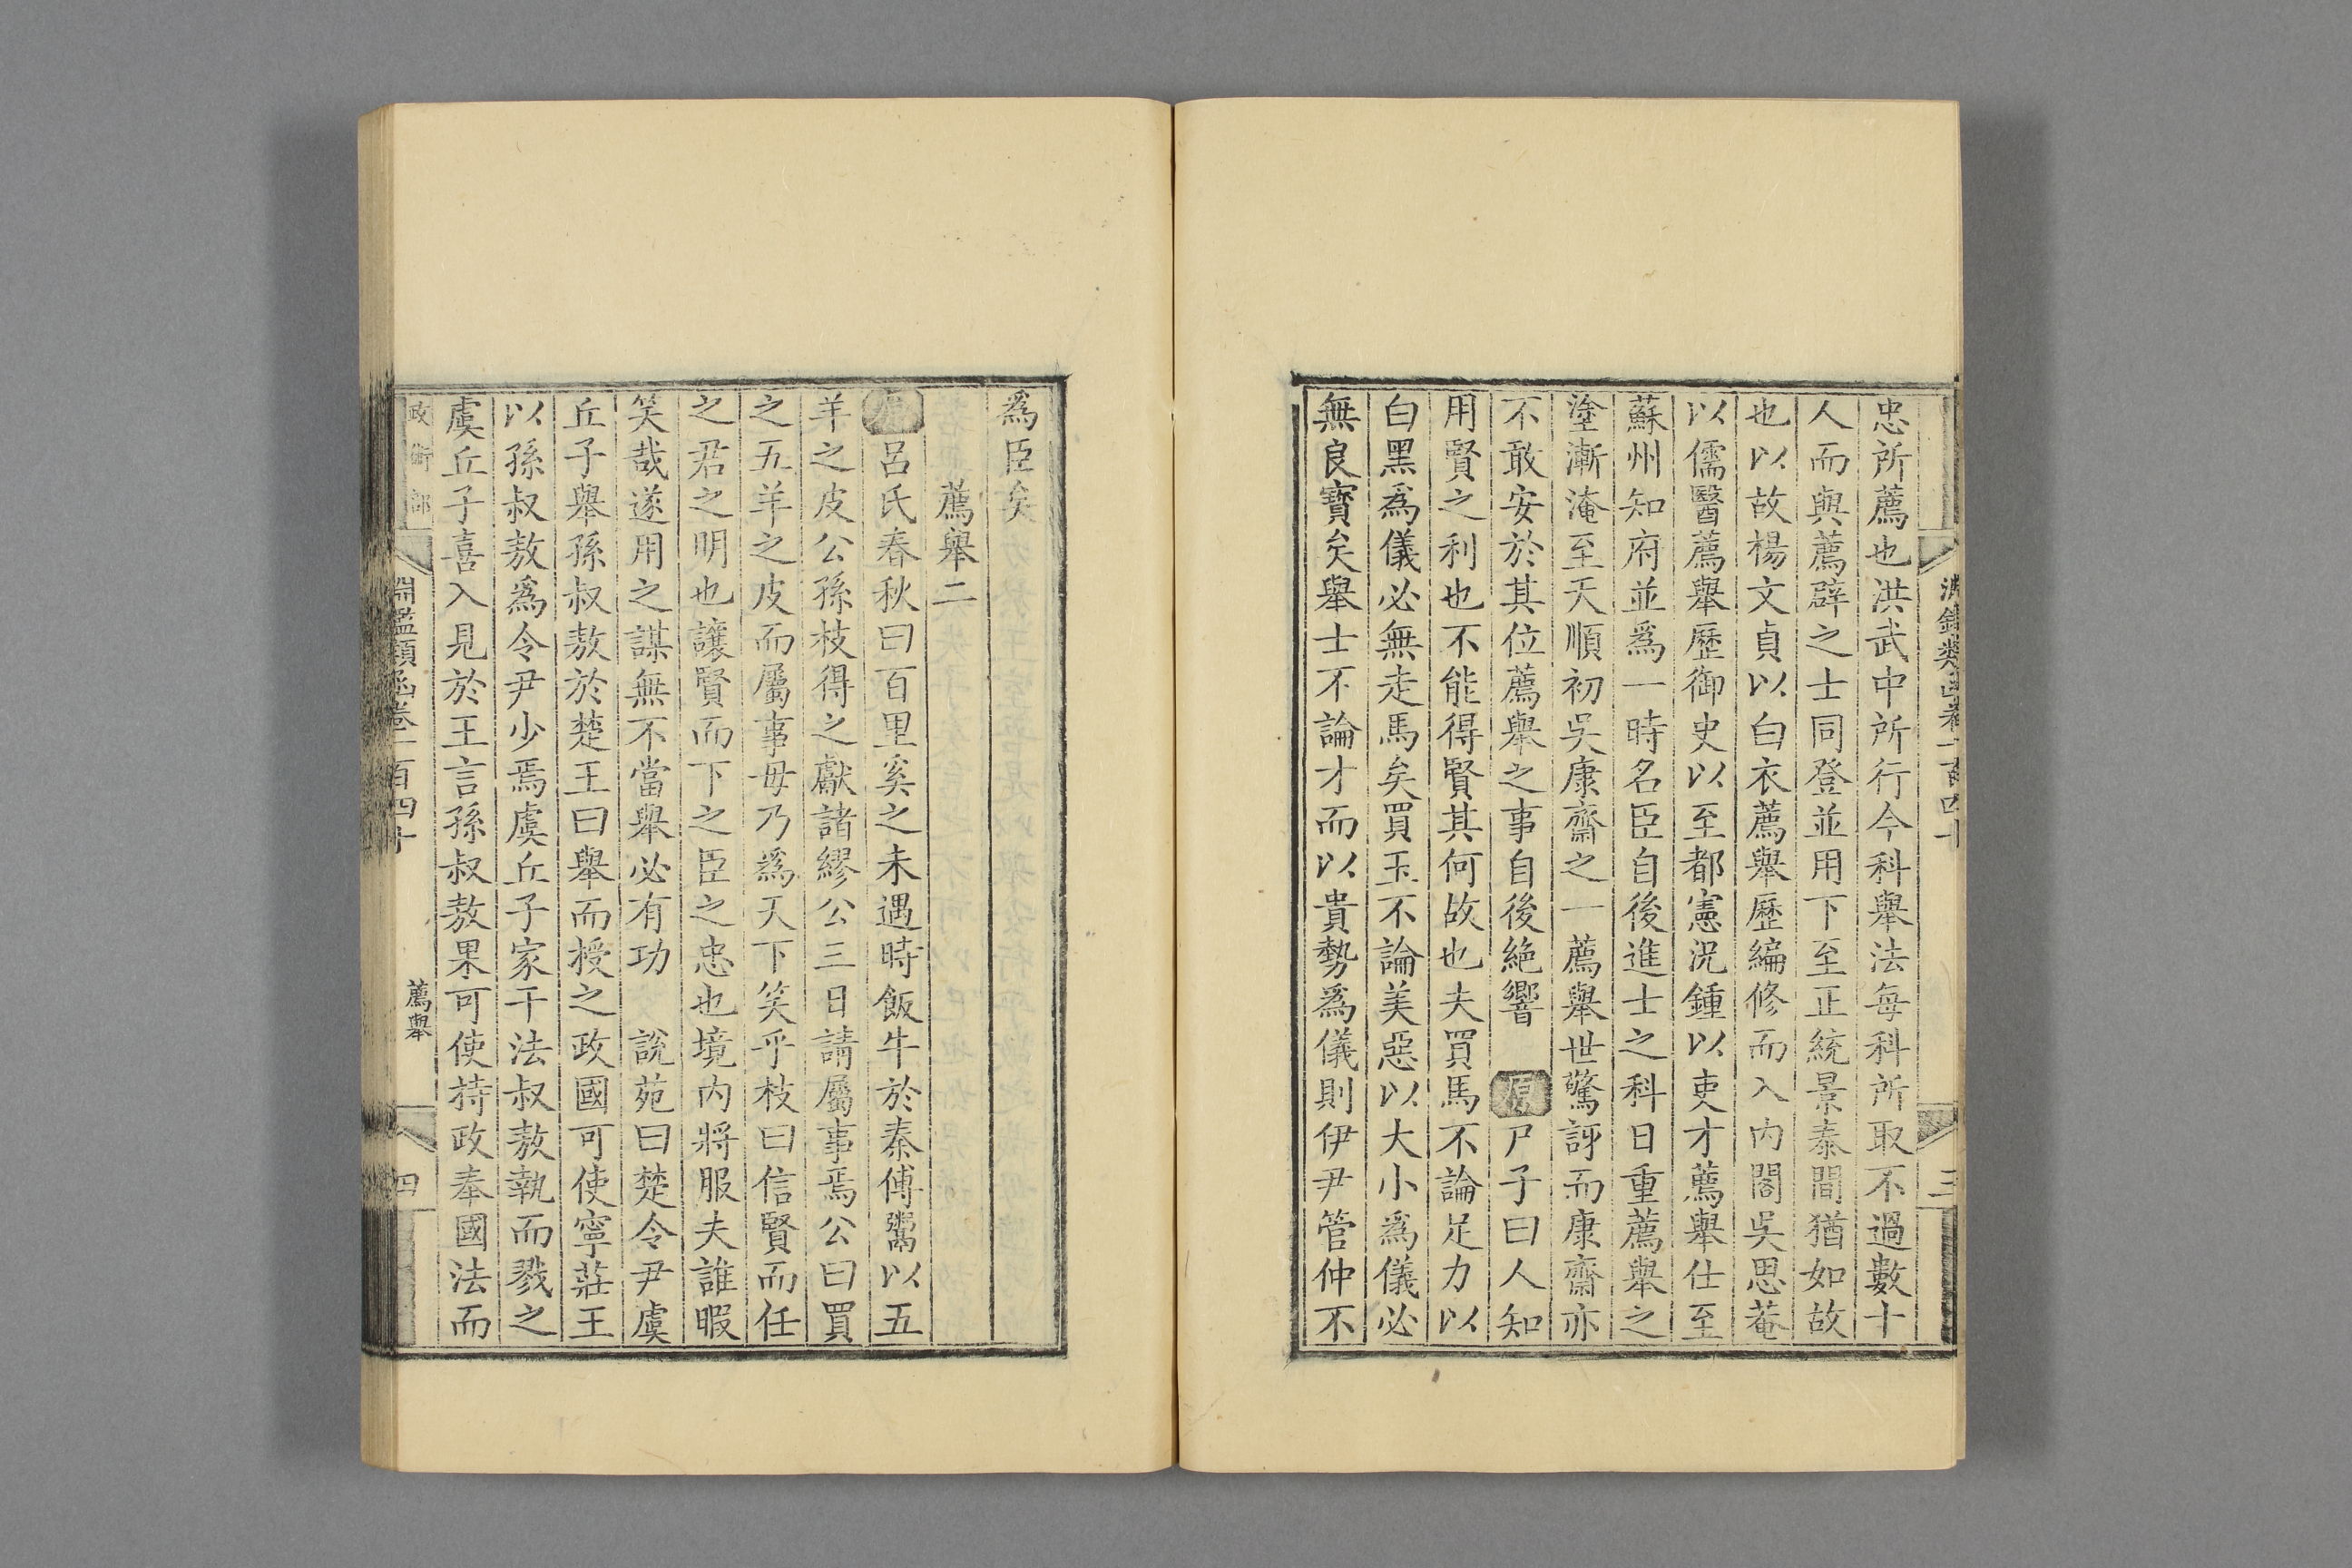 淵鑑類函卷一百四十
三
忠所薦也洪武中所行今科舉法每科所取不過數十
人而與薦辟之士同登並用下至正統景泰間猶如故
也以故楊文貞以白衣薦舉歷編修而入內閣吳思菴
以儒醫薦舉歷御史以至都憲況鍾以吏才薦舉仕至
蘇州知府並爲一時名臣自後進士之科日重薦舉之
塗漸淹至天順初吳康齋之一薦舉世驚訝而康齋亦
不敢安於其位薦舉之事自後絶響 原尸子曰人知
用賢之利也不能得賢其何故也夫買馬不論足力以
白黑爲儀必無走馬矣買玉不論美惡以大小爲儀必
無良寶矣舉士不論才而以貴勢爲儀則伊尹管仲不
爲臣矣
薦舉二
原呂氏春秋曰百里奚之未遇時飯牛於秦傅鬻以五
羊之皮公孫枝得之獻諸繆公三日請屬事焉公曰買
之五羊之皮而屬事毋乃爲天下笑乎枝曰信賢而任
之君之明也讓賢而下之臣之忠也境內將服夫誰暇
笑哉遂用之謀無不當舉必有功 說苑曰楚令尹虞
丘子舉孫叔敖於楚王曰舉而授之政國可使寧莊王
以孫叔敖爲令尹少焉虞丘子家干法叔敖執而戮之
虞丘子喜入見於王言孫叔敖果可使持政奉國法而
政術部
淵鑑類函卷一百四十
薦舉
四